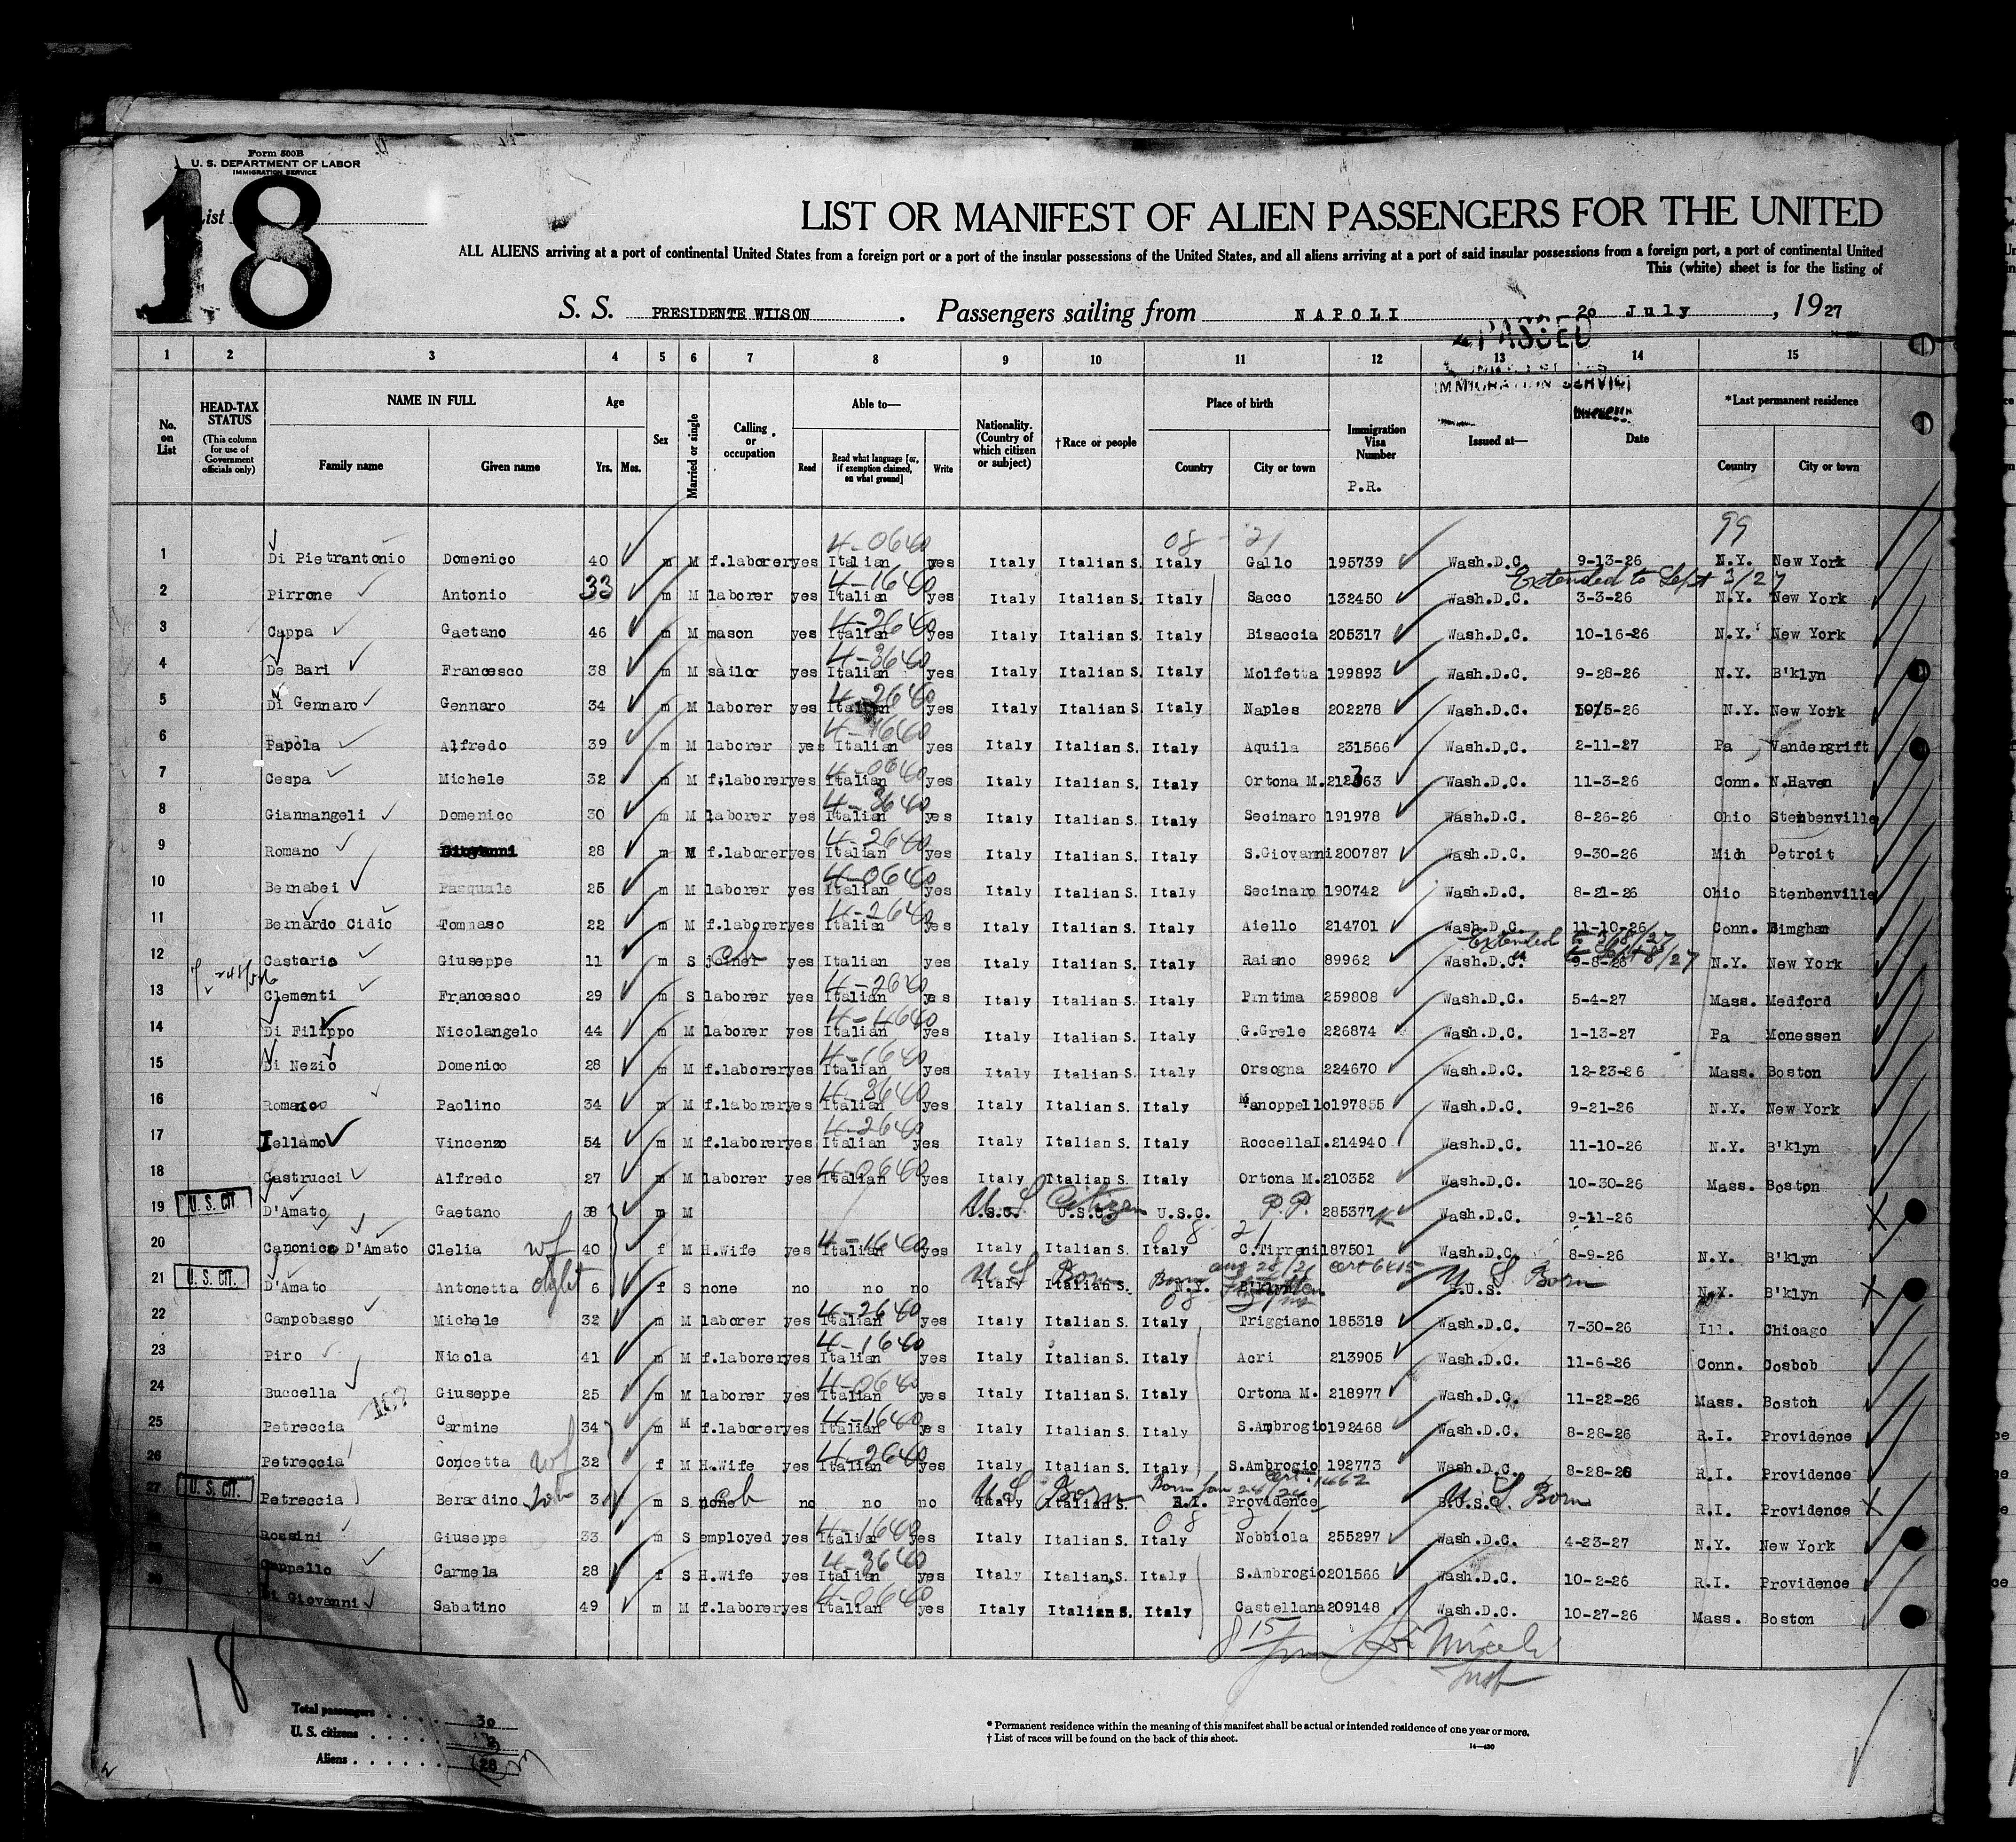 Form 500B
U. S. DEPARTMENT OF LABOR
IMMIGRATION SERVICE
List 18
LIST OR MANIFEST OF ALIEN PASSENGERS FOR THE UNITED
ALL ALIENS arriving at a port of continental United States from a foreign port or a port of the insular possessions of the United States, and all aliens arriving at a port of said insular possessions from a foreign port, a port of continental United
This (white) sheet is for the listing of
S. S. PRESIDENTE WILSON. Passengers sailing from NAPOLI 20 July, 1927
PASSED
IMMIGRATION SERVICE
1 2 3 4 5 6 7 8 9 10 11 12 13 14 15
No. on List
HEAD-TAX STATUS (This column for use of Government officials only)
NAME IN FULL
Family name Given name
Age
Yrs. Mos.
Sex
Married or single
Calling or occupation
Able to—
Read
Read what language [or, if exemption claimed, on what ground]
Write
Nationality. (Country of which citizen or subject)
†Race or people
Place of birth
Country City or town
Immigration Visa Number
P.R.
Issued at—
Date
*Last permanent residence
Country City or town
4-0640 08 - 21 99
1 Di Pietrantonio Domenico 40 m M f.laborer yes Italian yes Italy Italian S. Italy Gallo 195739 Wash.D.C. 9-13-26 N.Y. New York
4-1640 Extended to Sept 3/27
2 Pirrone Antonio 33 m M laborer yes Italian yes Italy Italian S. Italy Sacco 132450 Wash.D.C. 3-3-26 N.Y. New York
4-2640
3 Cappa Gaetano 46 m M mason yes Italian yes Italy Italian S. Italy Bisaccia 205317 Wash.D.C. 10-16-26 N.Y. New York
4-3640
4 De Bari Francesco 38 m M sailor yes Italian yes Italy Italian S. Italy Molfetta 199893 Wash.D.C. 9-28-26 N.Y. B'klyn
4-2640
5 Di Gennaro Gennaro 34 m M laborer yes Italian yes Italy Italian S. Italy Naples 202278 Wash.D.C. 10/5-26 N.Y. New York
4-1640
6 Papola Alfredo 39 m M laborer yes Italian yes Italy Italian S. Italy Aquila 231566 Wash.D.C. 2-11-27 Pa Vandergrift
4-0640
7 Cespa Michele 32 m M f.laborer yes Italian yes Italy Italian S. Italy Ortona M. 212363 Wash.D.C. 11-3-26 Conn. N.Haven
4-3640
8 Giannangeli Domenico 30 m M laborer yes Italian yes Italy Italian S. Italy Secinaro 191978 Wash.D.C. 8-26-26 Ohio Stenbenville
4-2640
9 Romano 28 m M f.laborer yes Italian yes Italy Italian S. Italy S.Giovanni 200787 Wash.D.C. 9-30-26 Mich Detroit
4-0640
10 Bernabei Pasquale 25 m M laborer yes Italian yes Italy Italian S. Italy Secinaro 190742 Wash.D.C. 8-21-26 Ohio Stenbenville
4-2640
11 Bernardo Cidio Tommaso 22 m M f.laborer yes Italian yes Italy Italian S. Italy Aiello 214701 Wash.D.C. 11-10-26 Conn. Bimgham
Extended to 3/8/27
to Sept 8/27
12 Castorio Giuseppe 11 m S joiner yes Italian yes Italy Italian S. Italy Raiano 89962 Wash.D.C. 9-8-26 N.Y. New York
4-2640
13 Clementi Francesco 29 m S laborer yes Italian yes Italy Italian S. Italy Pntima 259808 Wash.D.C. 5-4-27 Mass. Medford
4-4640
14 Di Filippo Nicolangelo 44 m M laborer yes Italian yes Italy Italian S. Italy G.Grele 226874 Wash.D.C. 1-13-27 Pa Monessen
4-1640
15 Di Nezio Domenico 28 m M f.laborer yes Italian yes Italy Italian S. Italy Orsogna 224670 Wash.D.C. 12-23-26 Mass. Boston
4-3640
16 Romano Paolino 34 m M f.laborer yes Italian yes Italy Italian S. Italy Manoppello 197855 Wash.D.C. 9-21-26 N.Y. New York
4-2640
17 Iellamo Vincenzo 54 m M f.laborer yes Italian yes Italy Italian S. Italy RoccellaI. 214940 Wash.D.C. 11-10-26 N.Y. B'klyn
4-0640
18 Castrucci Alfredo 27 m M laborer yes Italian yes Italy Italian S. Italy Ortona M. 210352 Wash.D.C. 10-30-26 Mass. Boston
U. S. CIT. U.S. Citizen P.P.
19 D'Amato Gaetano 38 m M U.S.C. U.S.C. U.S.C. 285377 Wash.D.C. 9-11-26
4-1640 08 21
20 Canonico D'Amato Clelia wf 40 f M H.Wife yes Italian yes Italy Italian S. Italy C.Tirreni 187501 Wash.D.C. 8-9-26 N.Y. B'klyn
U. S. CIT. US Born Born aug 28/21 cert 6415 U S Born
21 D'Amato Antonetta dght 6 f S none no no no Italy Italian S. N.Y. B.U.S. N.Y. B'klyn
4-2640 08
22 Campobasso Michele 32 m M laborer yes Italian yes Italy Italian S. Italy Triggiano 185318 Wash.D.C. 7-30-26 Ill. Chicago
4-1640
23 Piro Nicola 41 m M f.laborer yes Italian yes Italy Italian S. Italy Acri 213905 Wash.D.C. 11-6-26 Conn. Cosbob
4-0640
24 Buccella Giuseppe 25 m M laborer yes Italian yes Italy Italian S. Italy Ortona M. 218977 Wash.D.C. 11-22-26 Mass. Boston
4-1640
25 Petreccia Carmine 34 m M f.laborer yes Italian yes Italy Italian S. Italy S.Ambrogio 192468 Wash.D.C. 8-28-26 R.I. Providence
4-2640
26 Petreccia Concetta wf 32 f M H.Wife yes Italian yes Italy Italian S. Italy S.Ambrogio 192773 Wash.D.C. 8-28-26 R.I. Providence
U. S. CIT. US Born Born Jan 24/24 Cert. 1662 U.S. Born
27 Petreccia Berardino 3 m S none no no no Italy Italian S. R.I. Providence B.U.S.C. R.I. Providence
4-1640 08 21
Rossini Giuseppe 33 m S employed yes Italian yes Italy Italian S. Italy Nobbiola 255297 Wash.D.C. 4-23-27 N.Y. New York
4-3640
Cappello Carmela 28 f S H.Wife yes Italian yes Italy Italian S. Italy S.Ambrogio 201566 Wash.D.C. 10-2-26 R.I. Providence
4-0640
30 Di Giovanni Sabatino 49 m M f.laborer yes Italian yes Italy Italian S. Italy Castellana 209148 Wash.D.C. 10-27-26 Mass. Boston
18
Total passengers . . . . 30
U. S. citizens . . . . .
Aliens . . . . . . 28
* Permanent residence within the meaning of this manifest shall be actual or intended residence of one year or more.
† List of races will be found on the back of this sheet.
14—430